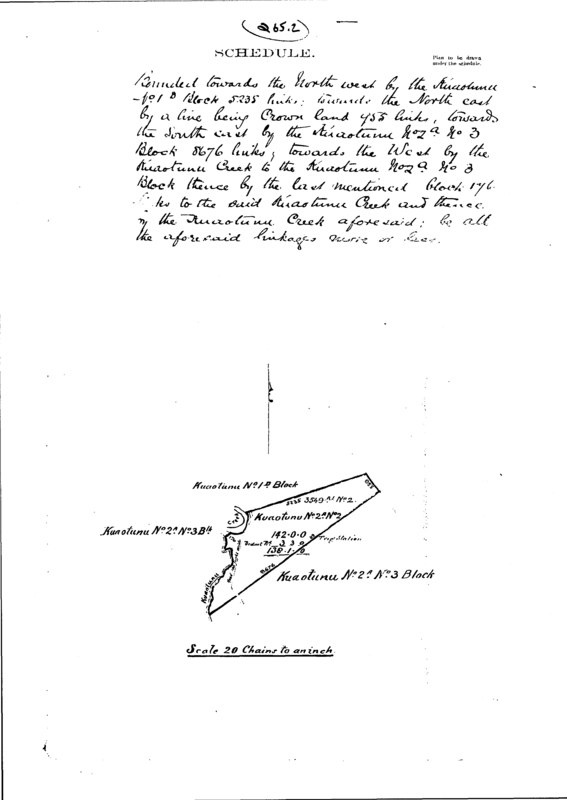 265.2
SCHEDULE.
Plan to be drawn
under the schedule.
Bounded towards the North west by the Kuaotunu
No 1 B Block 5235 links; towards the North east
by a line being Crown land 455 links, towards
the South east by the Kuaotunu No 2A No 3
Block 8676 links; towards the West by the
Kuaotunu Creek to the Kuaotunu No 2A No 3
Block thence by the last mentioned block 176
to the said Kuaotunu Creek and thence
by the Kuaotunu Creek aforesaid; be all
the aforesaid linkages more or less.
Kuaotunu No 1B Block
5235 3549 No 2.
Kuaotunu No 2A No 2
Kuaotunu No 2A No 3 Blk
142-0-0
Trig Station
3 3 0
138.1.0
8676
Kuaotunu No 2A No 3 Block
Kuaotunu
Scale 20 Chains to an inch.